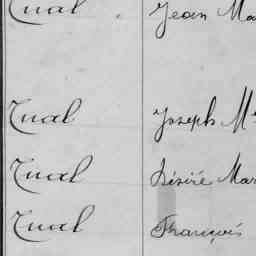 Tual Jean Ma
Tual Joseph M
Tual Désiré Mar
Tual François